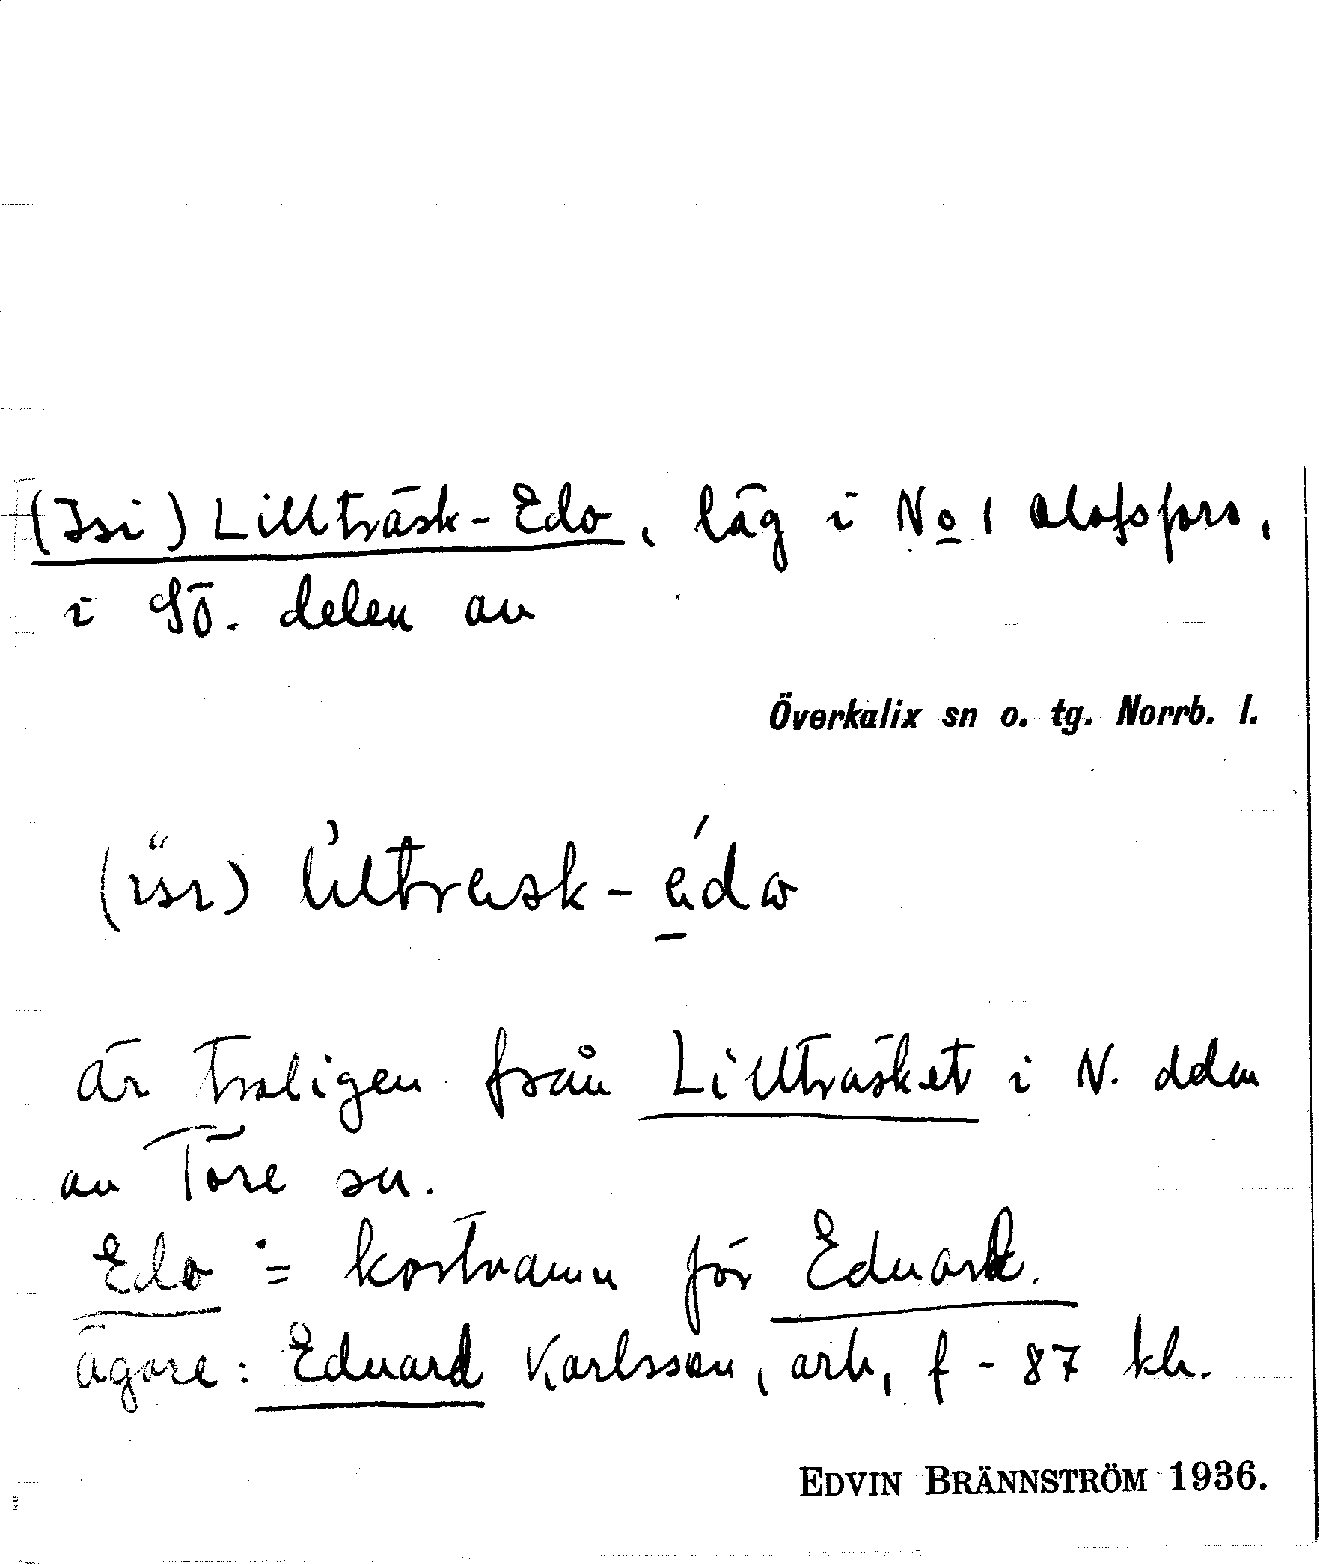 (Isi) Lillträsk-Edo, läg i No 1 Olofsfors,
i SÖ. delen av
Överkalix sn o. tg. Norrb. l.
är troligen från Lillträsket i N. delen
av Töre sn.
Edo = kortnamn för Eduard.
ägare: Eduard Karlsson, arb, f - 87 kh.
EDVIN BRÄNNSTRÖM 1936.